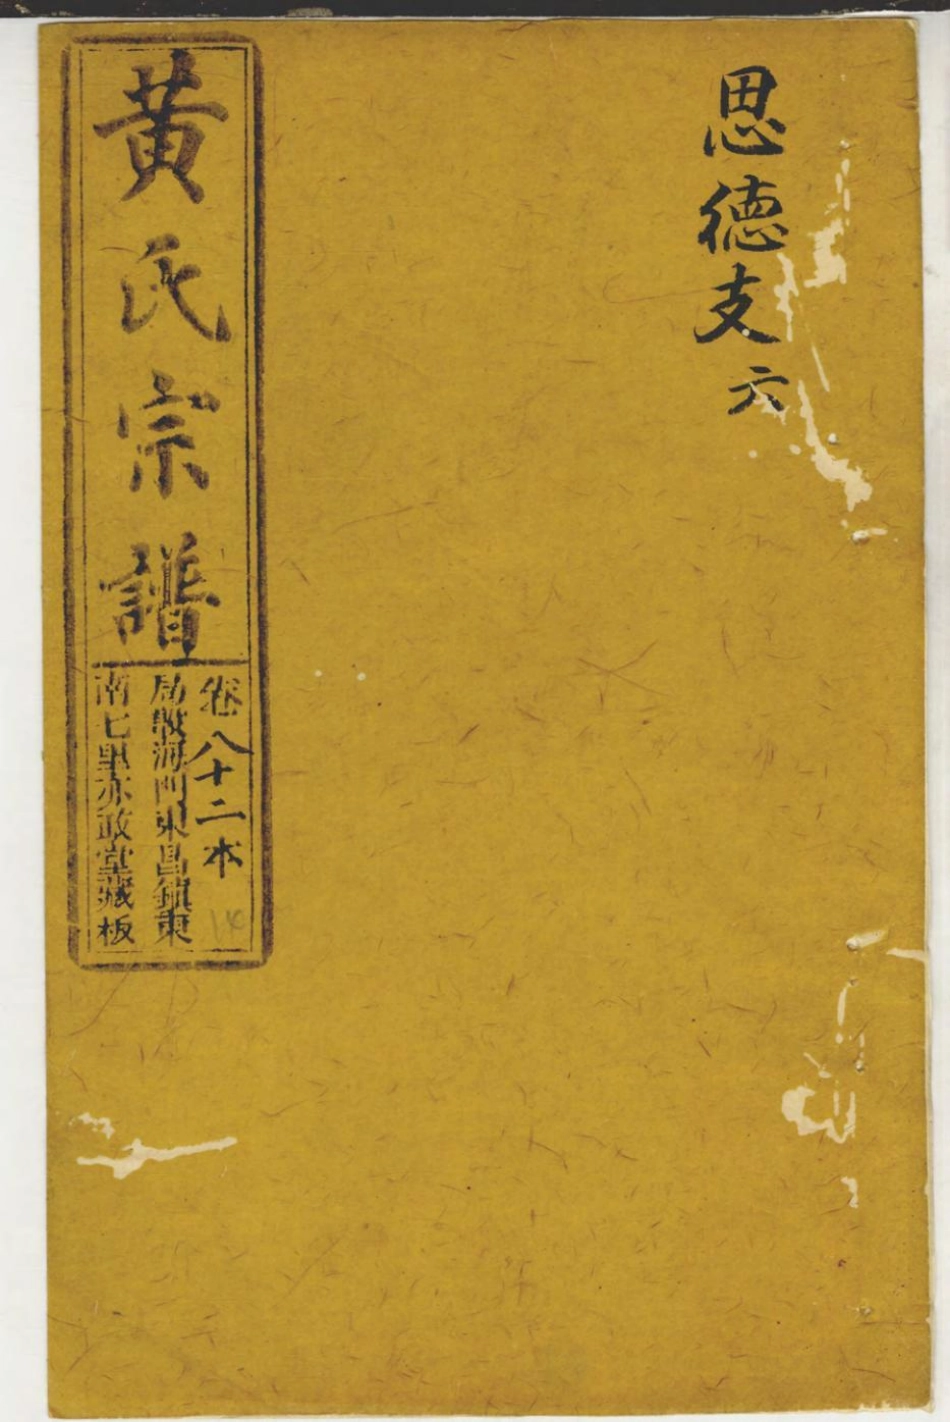 思德支六
黃氏宗譜
卷八十二本
局設海門東昌鎮東
南七里亦政堂藏板